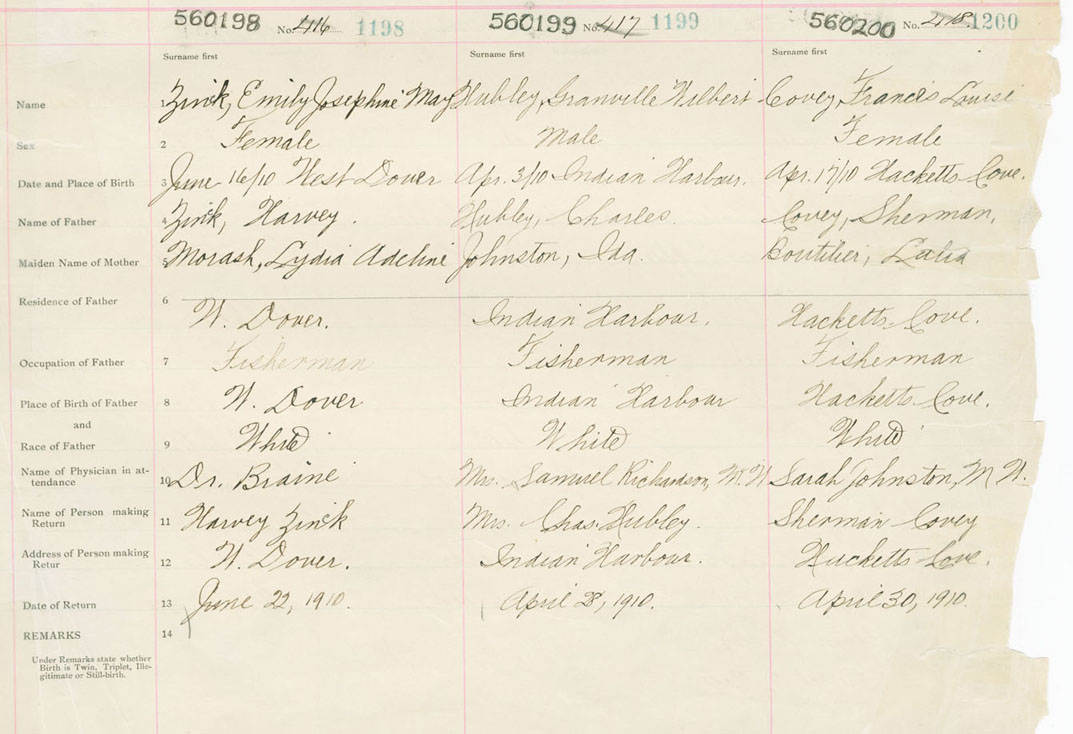 560198 No. 416 1198 560199 No. 417 1199 560200 No. 418 1200
Surname first Surname first Surname first
Name 1 Zink, Emily Josephine May Hubley, Granville Wilbert Covey, Frances Louise
Sex 2 Female Male Female
Date and Place of Birth 3 June 16/10 West Dover Apr. 3/10 Indian Harbour. Apr. 17/10 Hacketts Cove.
Name of Father 4 Zink, Harvey. Hubley, Charles. Covey, Sherman,
Maiden Name of Mother 5 Morash, Lydia Adeline Johnston, Ida. Boutilier, Lalia
Residence of Father 6 W. Dover. Indian Harbour. Hacketts Cove.
Occupation of Father 7 Fisherman Fisherman Fisherman
Place of Birth of Father 8 W. Dover Indian Harbour Hacketts Cove.
and
Race of Father 9 White White White
Name of Physician in at-
tendance 10 Dr. Braine Mrs. Samuel Richardson, M.W Sarah Johnston, M W.
Name of Person making
Return 11 Harvey Zink Mrs. Chas. Hubley. Sherman Covey
Address of Person making
Retur 12 W. Dover. Indian Harbour. Hacketts Cove.
Date of Return 13 June 22, 1910. April 28, 1910. April 30, 1910.
REMARKS 14
Under Remarks state whether
Birth is Twin, Triplet, Ille-
gitimate or Still-birth.